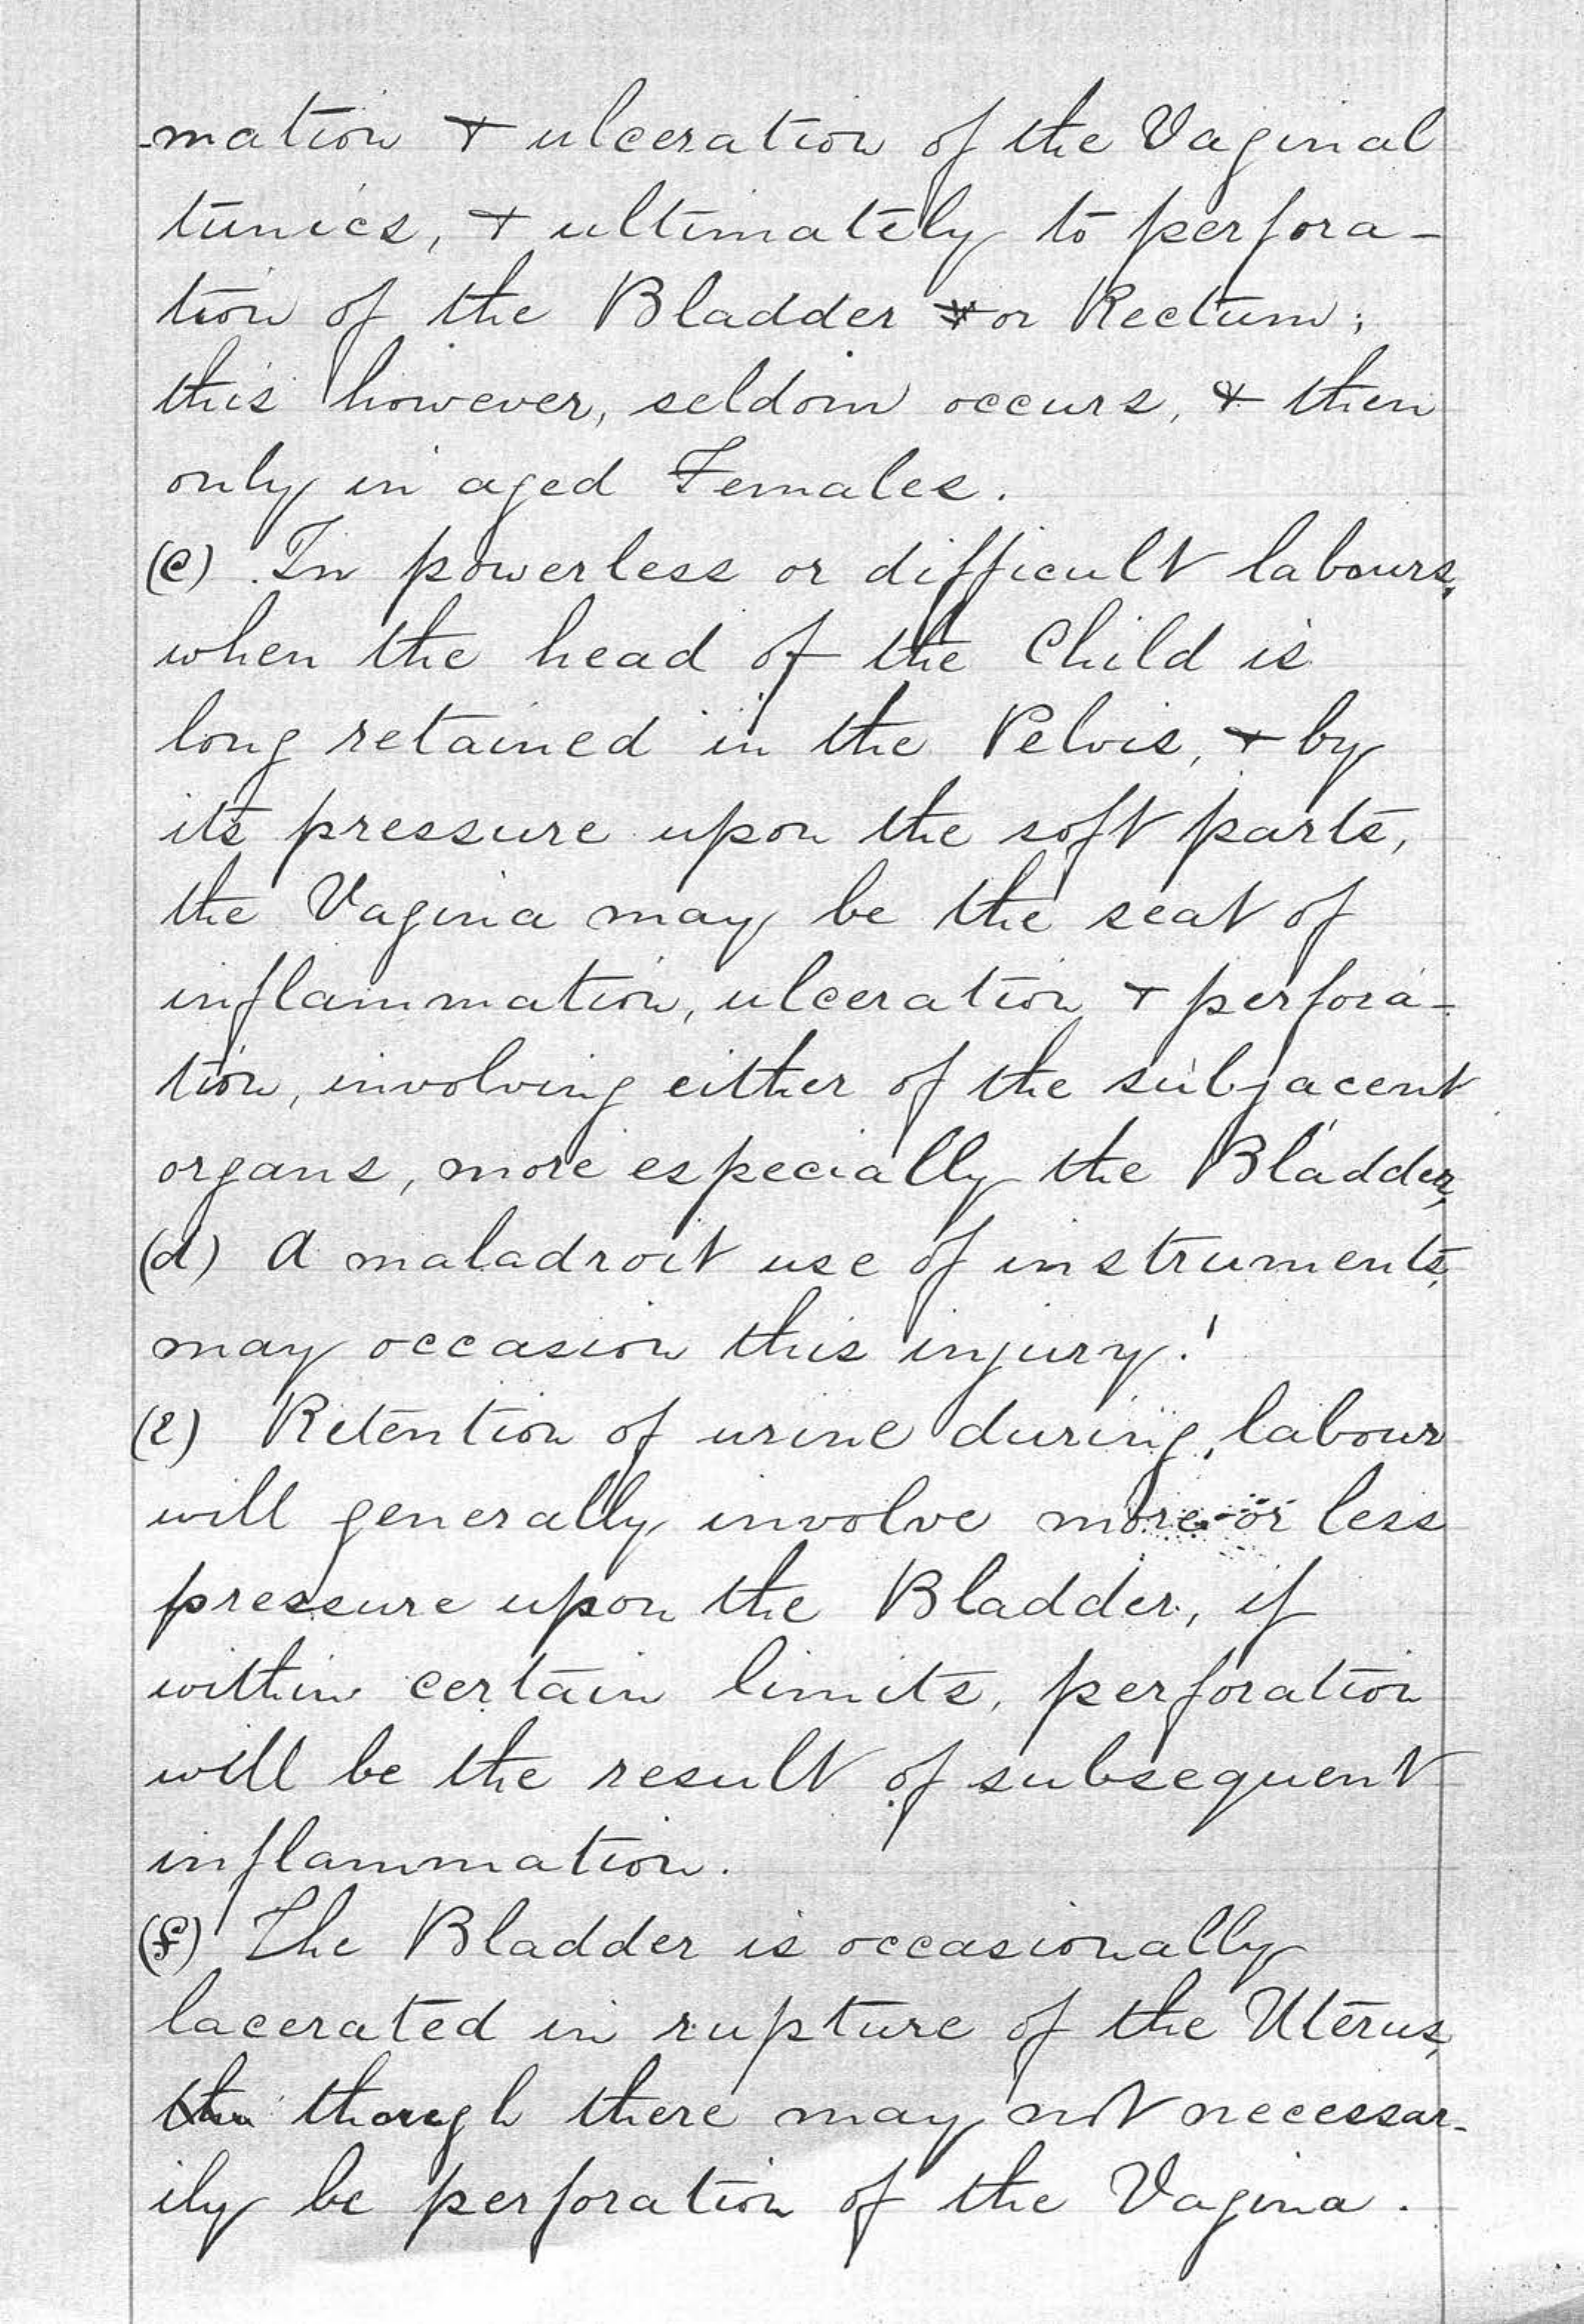 -mation & ulceration of the Vaginal
tunics, & ultimately to perfora-
tion of the Bladder or Rectum;
this however, seldom occurs, & then
only in aged Females.
(c) In powerless or difficult labours,
when the head of the Child is
long retained in the Pelvis, & by
its pressure upon the soft parts,
the Vagina may be the seat of
inflammation, ulceration & perfora-
tion, involving either of the subjacent
organs, more especially the Bladder,
(d) A maladroit use of instruments,
may occasion this injury!
(e) Retention of urine during labour
will generally involve more or less
pressure upon the Bladder, if
within certain limits, perforation
will be the result of subsequent
inflammation.
(f) The Bladder is occasionally
lacerated in rupture of the Uterus,
though there may not necessar-
ily be perforation of the Vagina.